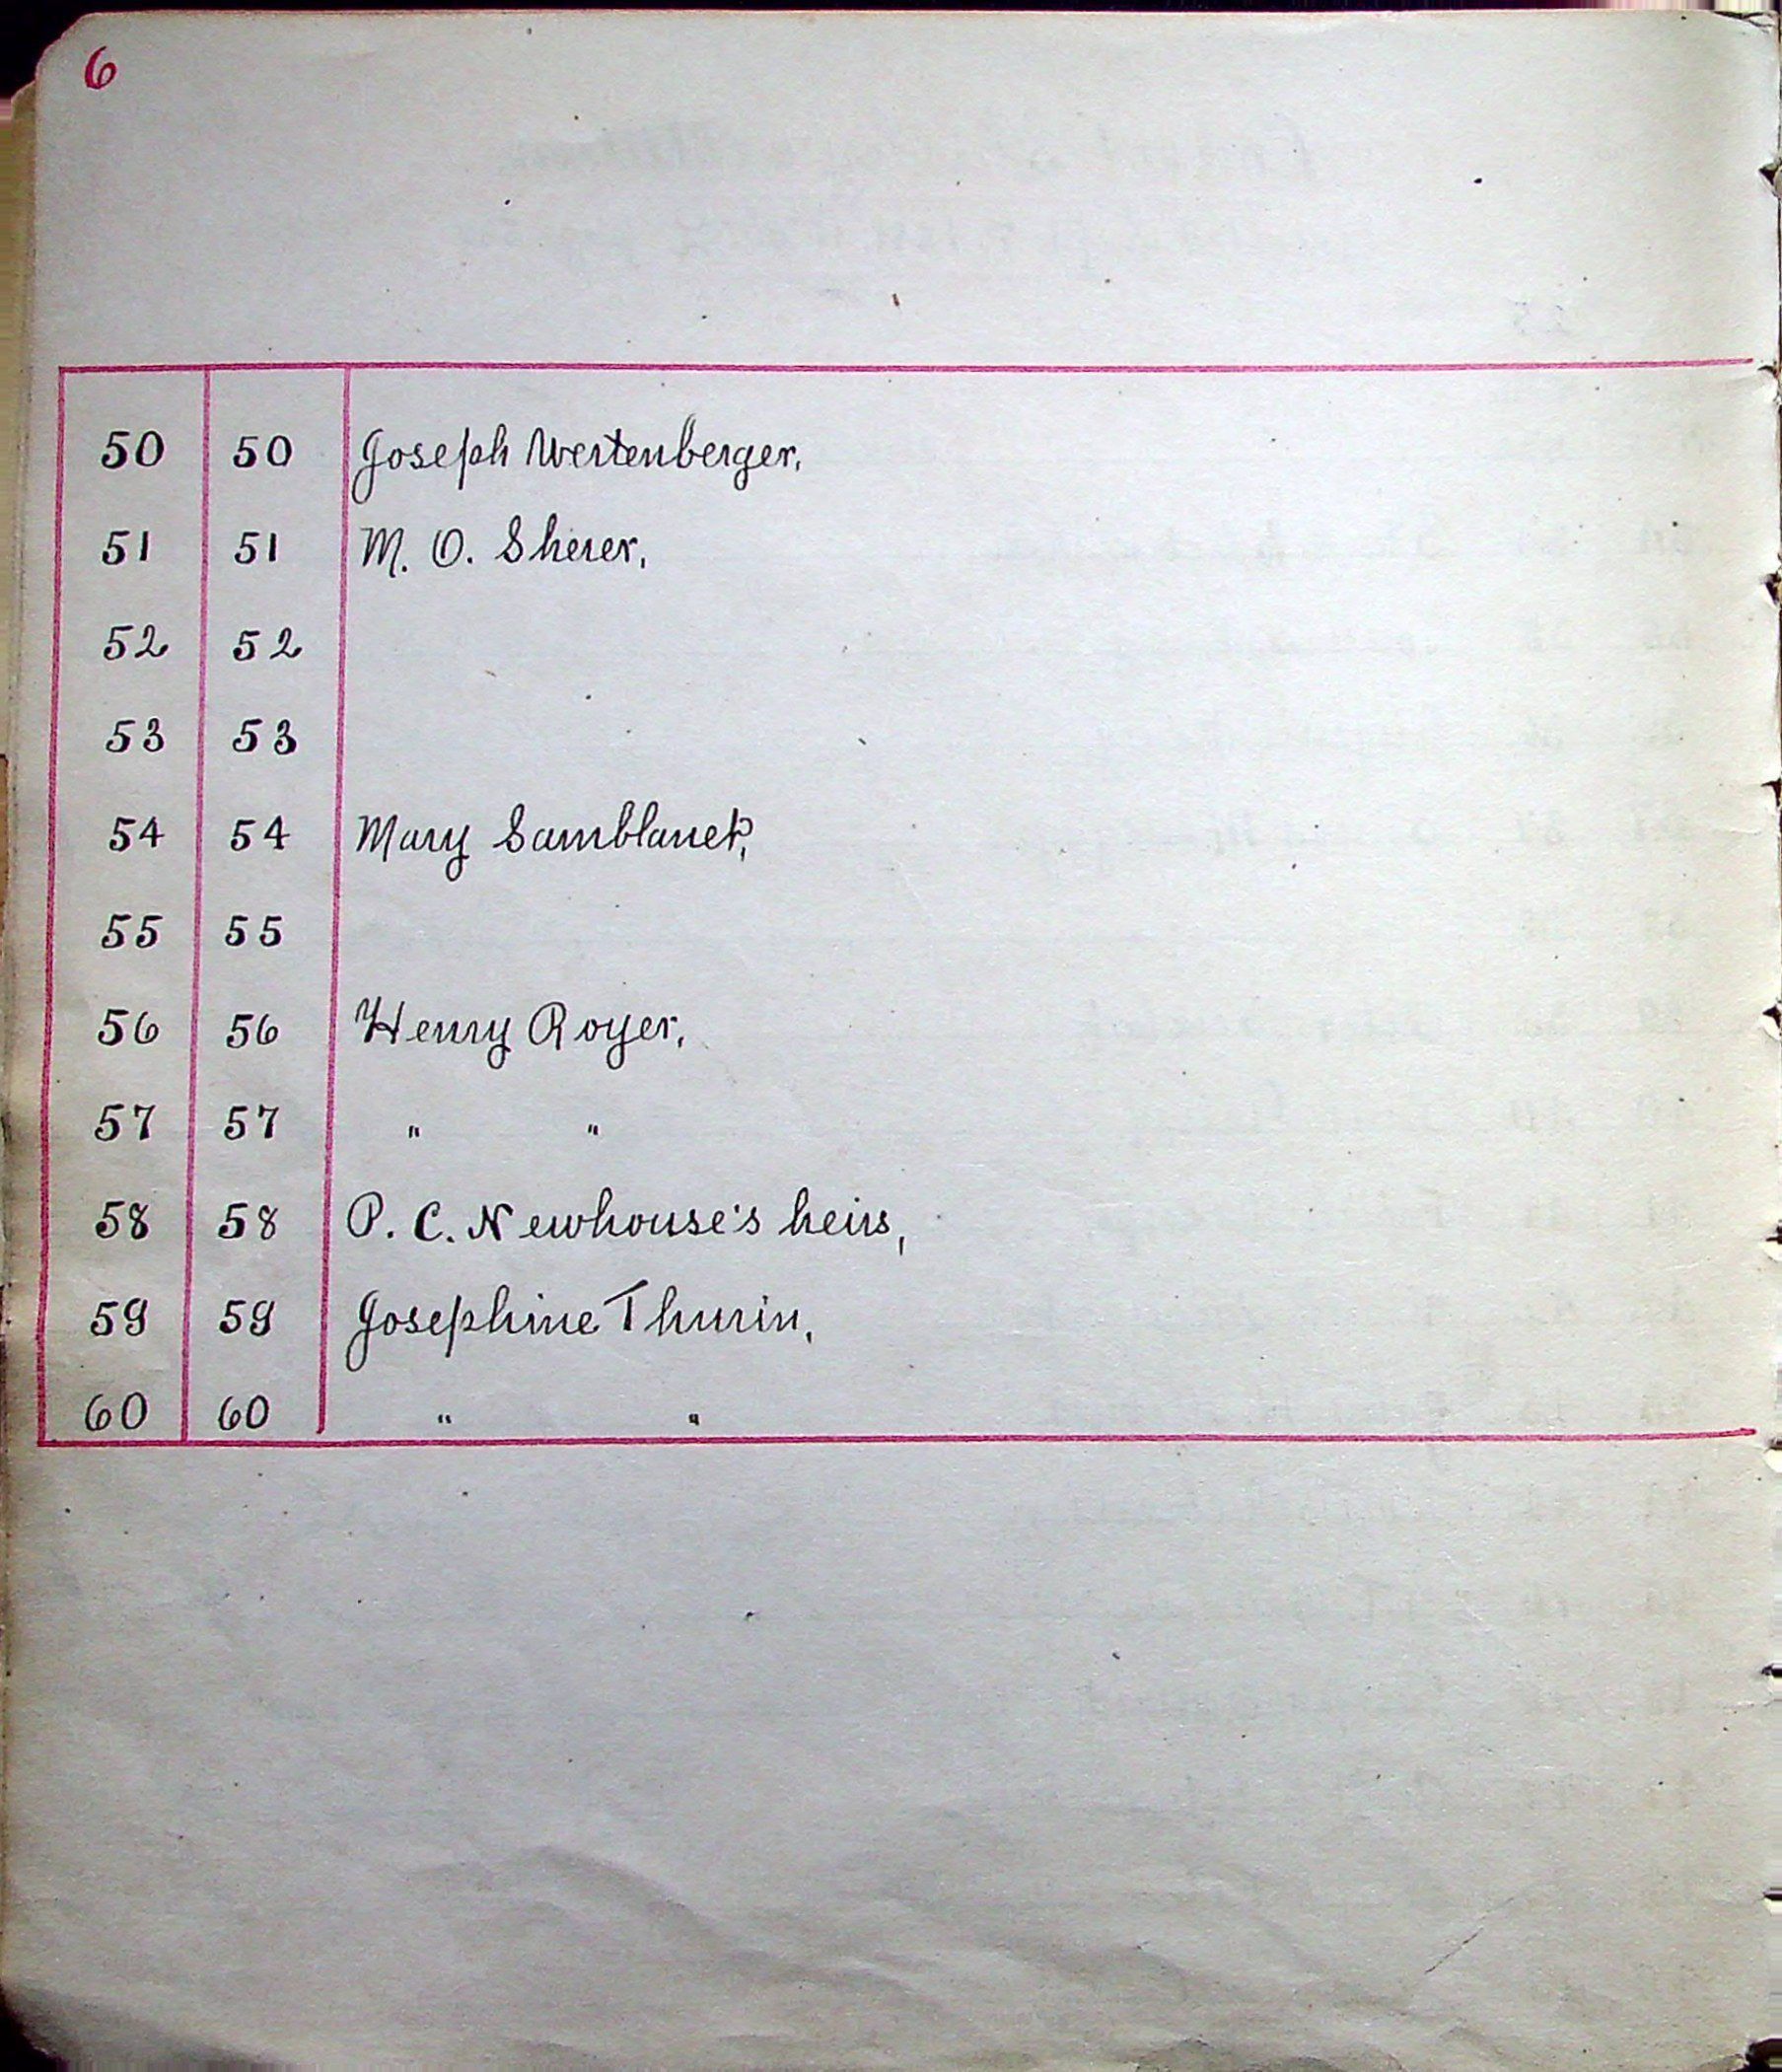 6
50 50 Joseph Wertenberger,
51 51 M. O. Sherer,
52 52
53 53
54 54 Mary Samblanet,
55 55
56 56 Henry Royer,
57 57 " "
58 58 P. C. Newhouse's heirs,
59 59 Josephine Thurin,
60 60 " "